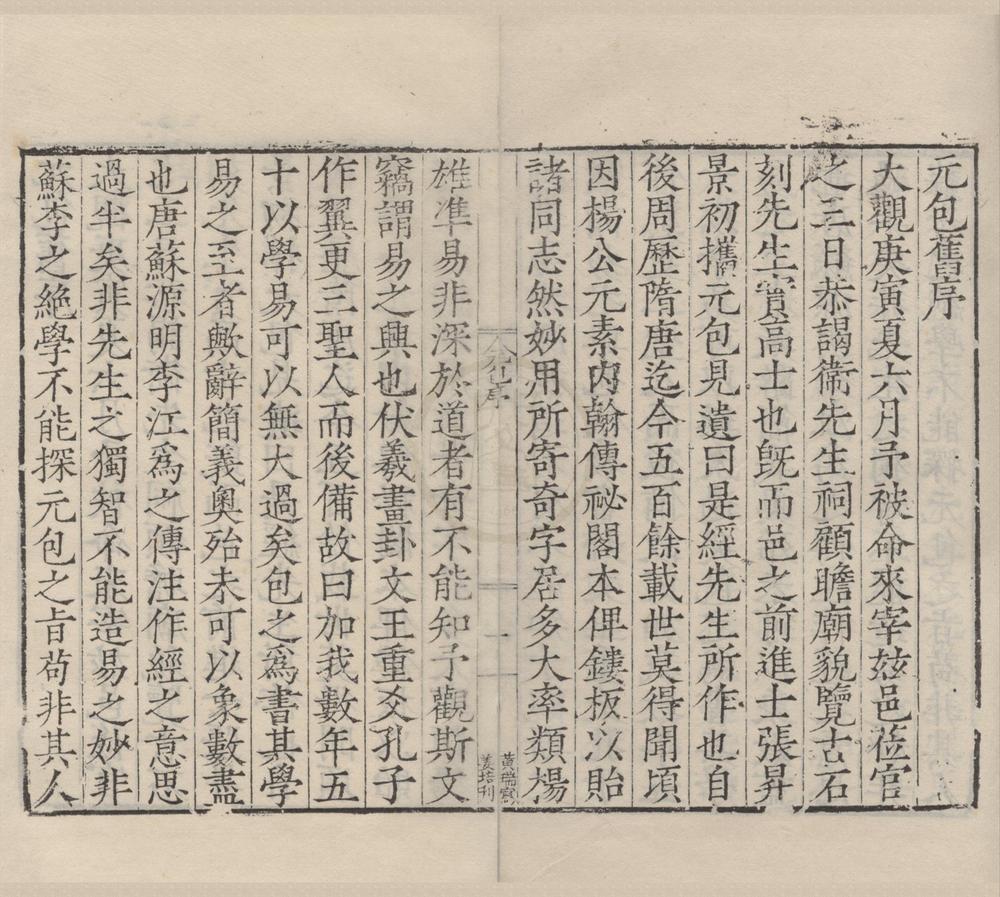 元包舊序
大觀庚寅夏六月予被命來宰玆邑莅官
之三日恭謁衞先生祠顧瞻廟貌覽古石
刻先生實高士也旣而邑之前進士張昇
景初攜元包見遺曰是經先生所作也自
後周歷隋唐迄今五百餘載世莫得聞頃
因楊公元素内翰傳祕閣本俾鏤板以貽
諸同志然妙用所寄奇字居多大率類楊
元包序
一
黄瑞寫
姜培刊
雄準易非深於道者有不能知予觀斯文
竊謂易之興也伏羲畫卦文王重爻孔子
作翼更三聖人而後備故曰加我數年五
十以學易可以無大過矣包之爲書其學
易之至者歟辭簡義奧殆未可以象數盡
也唐蘇源明李江爲之傳注作經之意思
過半矣非先生之獨智不能造易之妙非
蘇李之絶學不能探元包之旨苟非其人